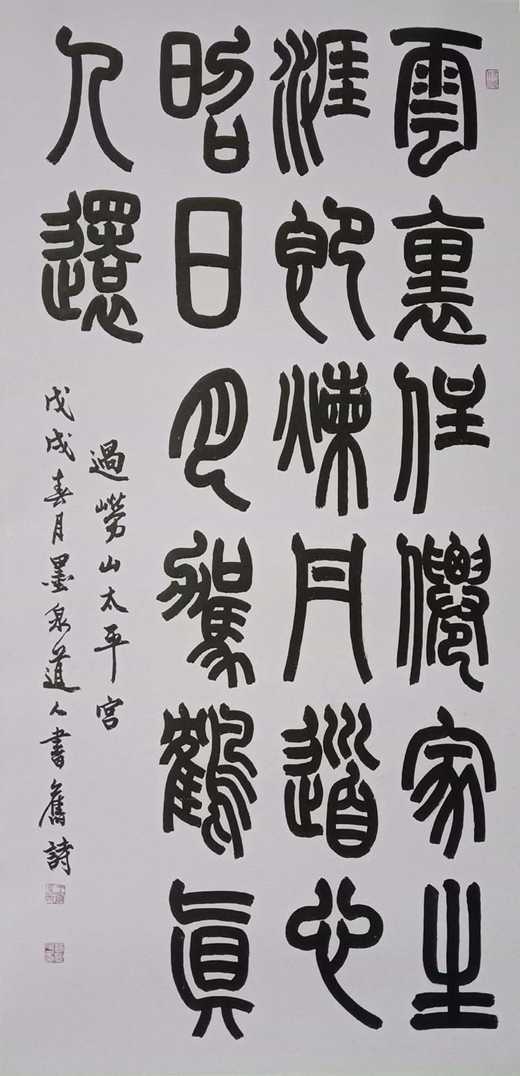 雲裏住僊家生
涯即煉丹道心
昭日月駕鶴眞
人還
過嶗山太平宮
戊戌春月墨泉道人書舊詩